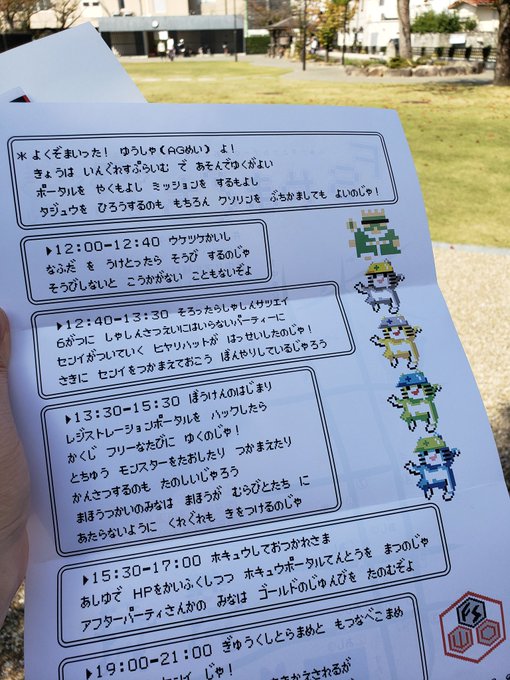 ＊よくぞまいった! ゆうしゃ(AGめい) よ!
きょうは いんぐれすぷらいむ で あそんでゆくがよい
ポータルを やくもよし ミッションを するもよし
タジュウを ひろうするのも もちろん クソリンを ぶちかましても よいのじゃ!
▶12:00-12:40 ウケツケかいし
なふだ を うけとったら そうび するのじゃ
そうびしないと こうかがない こともないぞよ
▶12:40-13:30 そろったらしゃしんサツエイ
6がつに しゃしんさつえいにはいらないパーティーに
センイがついていく ヒヤリハットが はっせいしたのじゃ!
さきに センイをつかまえておこう ぼんやりしているじゃろう
▶13:30-15:30 ぼうけんのはじまり
レジストレーションポータルを ハックしたら
かくじ フリーなたびに ゆくのじゃ!
とちゅう モンスターをたおしたり つかまえたり
かんさつするのも たのしいじゃろう
まほうつかいのみなは まほうが むらびとたち に
あたらないように くれぐれも きをつけるのじゃ
▶15:30-17:00 ホキュウしておつかれさま
あしゆで HPをかいふくしつつ ホキュウポータルてんとうを まつのじゃ
アフターパーティさんかの みなは ゴールドのじゅんびを たのむぞよ
▶19:00-21:00 ぎゅうくしとらまめと もつなべこまめ
じゃ!
FS